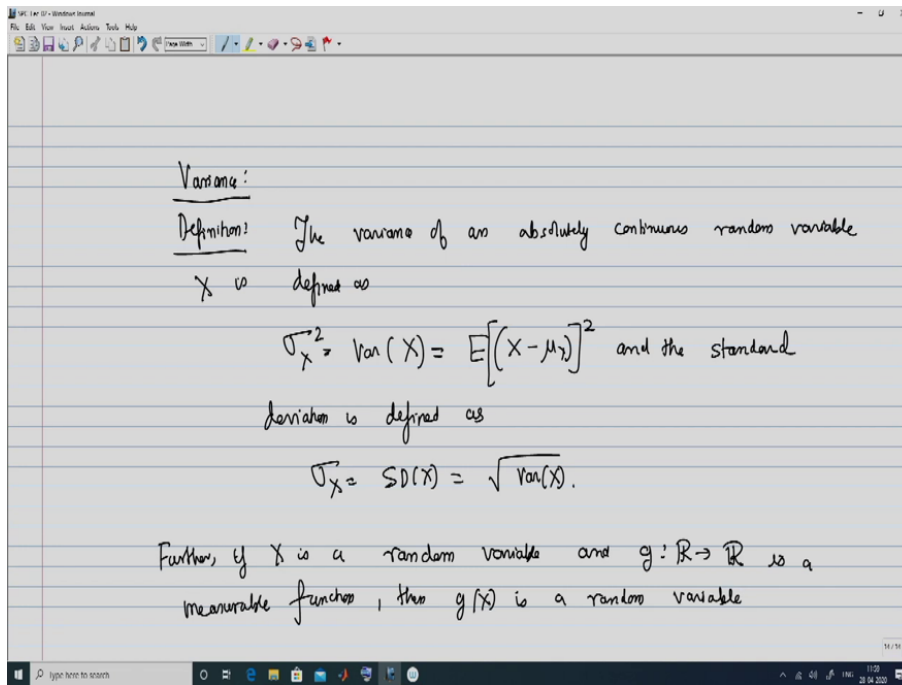 SPC Lec 07 - Windows Journal
File Edit View Insert Actions Tools Help
Page Width
Variance:
Definition: The variance of an absolutely continuous random variable
X is defined as
σ_X^2 = Var(X) = E[(X-μ_X)]^2 and the standard
deviation is defined as
σ_X = SD(X) = √Var(X).
Further, if X is a random variable and g: ℝ→ℝ is a
measurable function, then g(X) is a random variable
14/14
Type here to search
ENG
11:59
28 04 2020